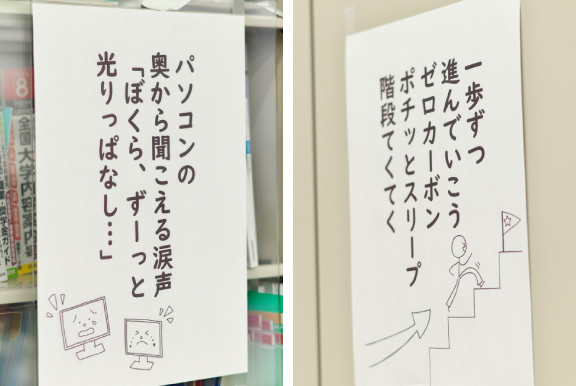 パソコンの
奥から聞こえる涙声
「ぼくら、ずーっと
光りっぱなし…」
一歩ずつ
進んでいこう
ゼロカーボン
ポチッとスリープ
階段てくてく
8
全国大学内容案内号